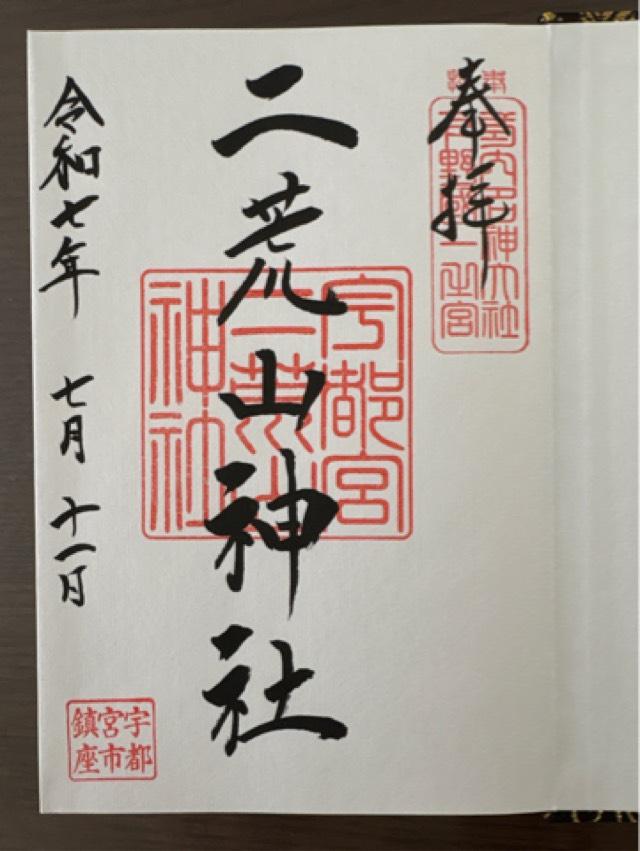 奉拝
式内名神大社
下野國一之宮
二荒山神社
宇都宮
二荒山
神社
令和七年 七月 十一日
宇都
宮市
鎮座